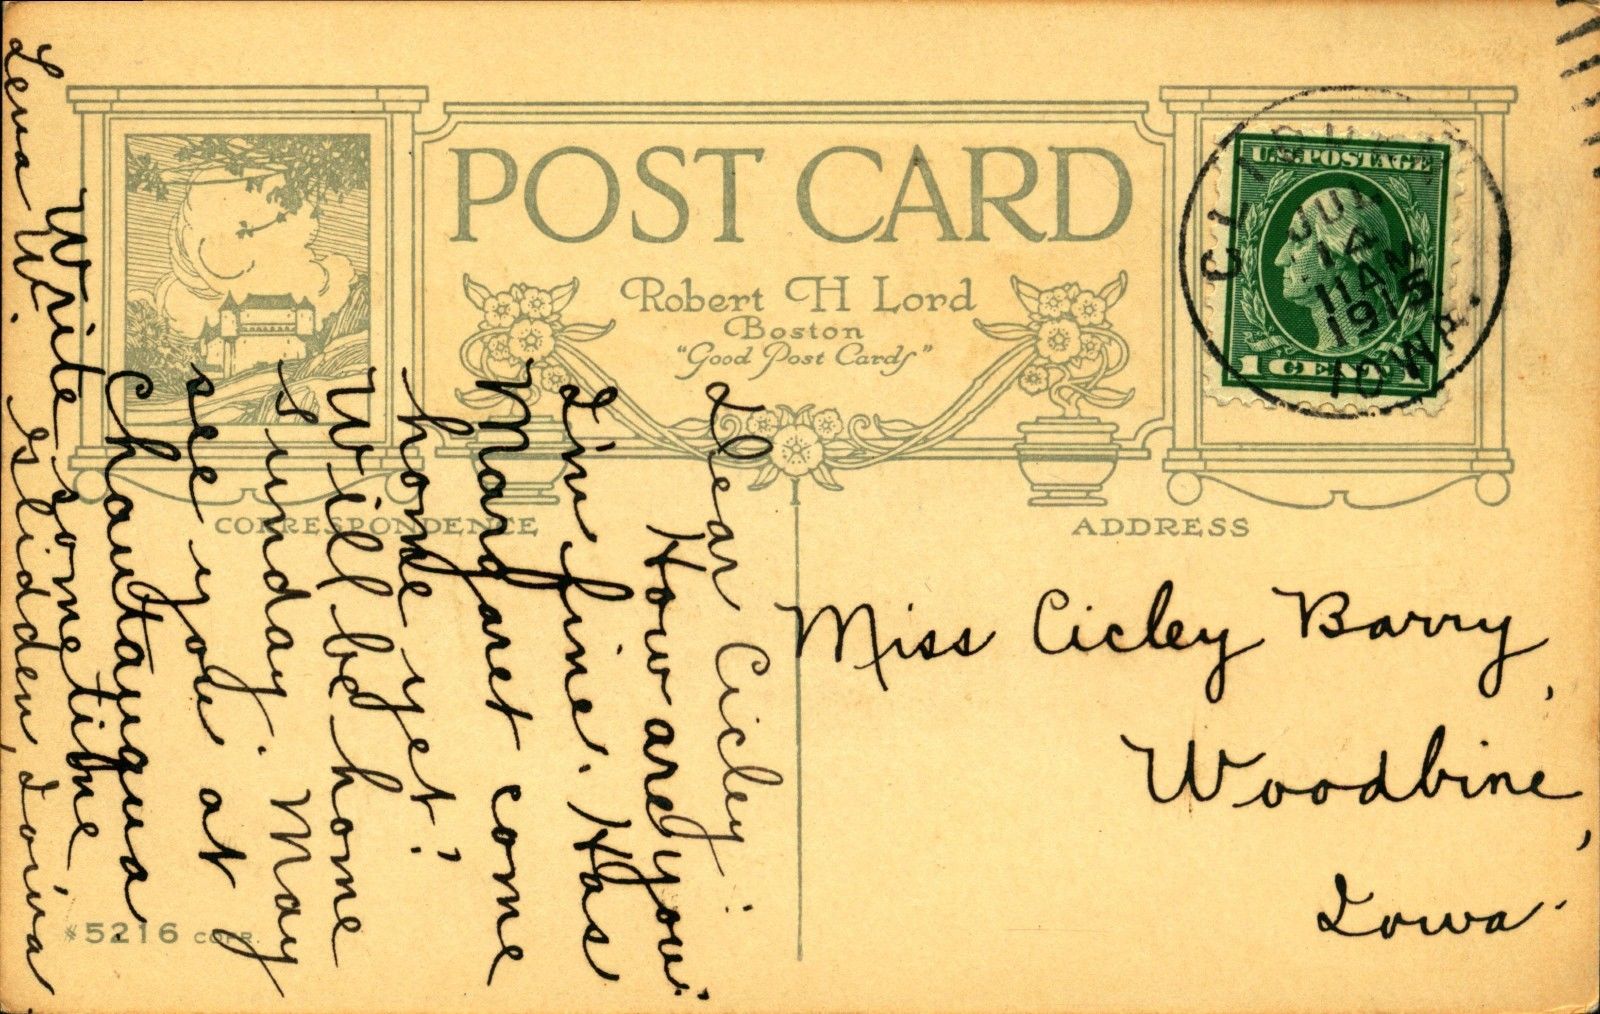 POST CARD
Robert H Lord
Boston
"Good Post Cards"
CORRESPONDENCE
ADDRESS
U.S. POSTAGE
1 CENT 1
JUL
14
11 AM
1915
IOWA.
Dear Cicley:
How are you.
I'm fine. Has
Margaret come
home yet?
Will be home
Sunday. May
see you at
Chautauqua
Write sometime
Lena W. Glidden, Iowa.
Miss Cicley Barry,
Woodbine,
Iowa.
*5216 COPR.